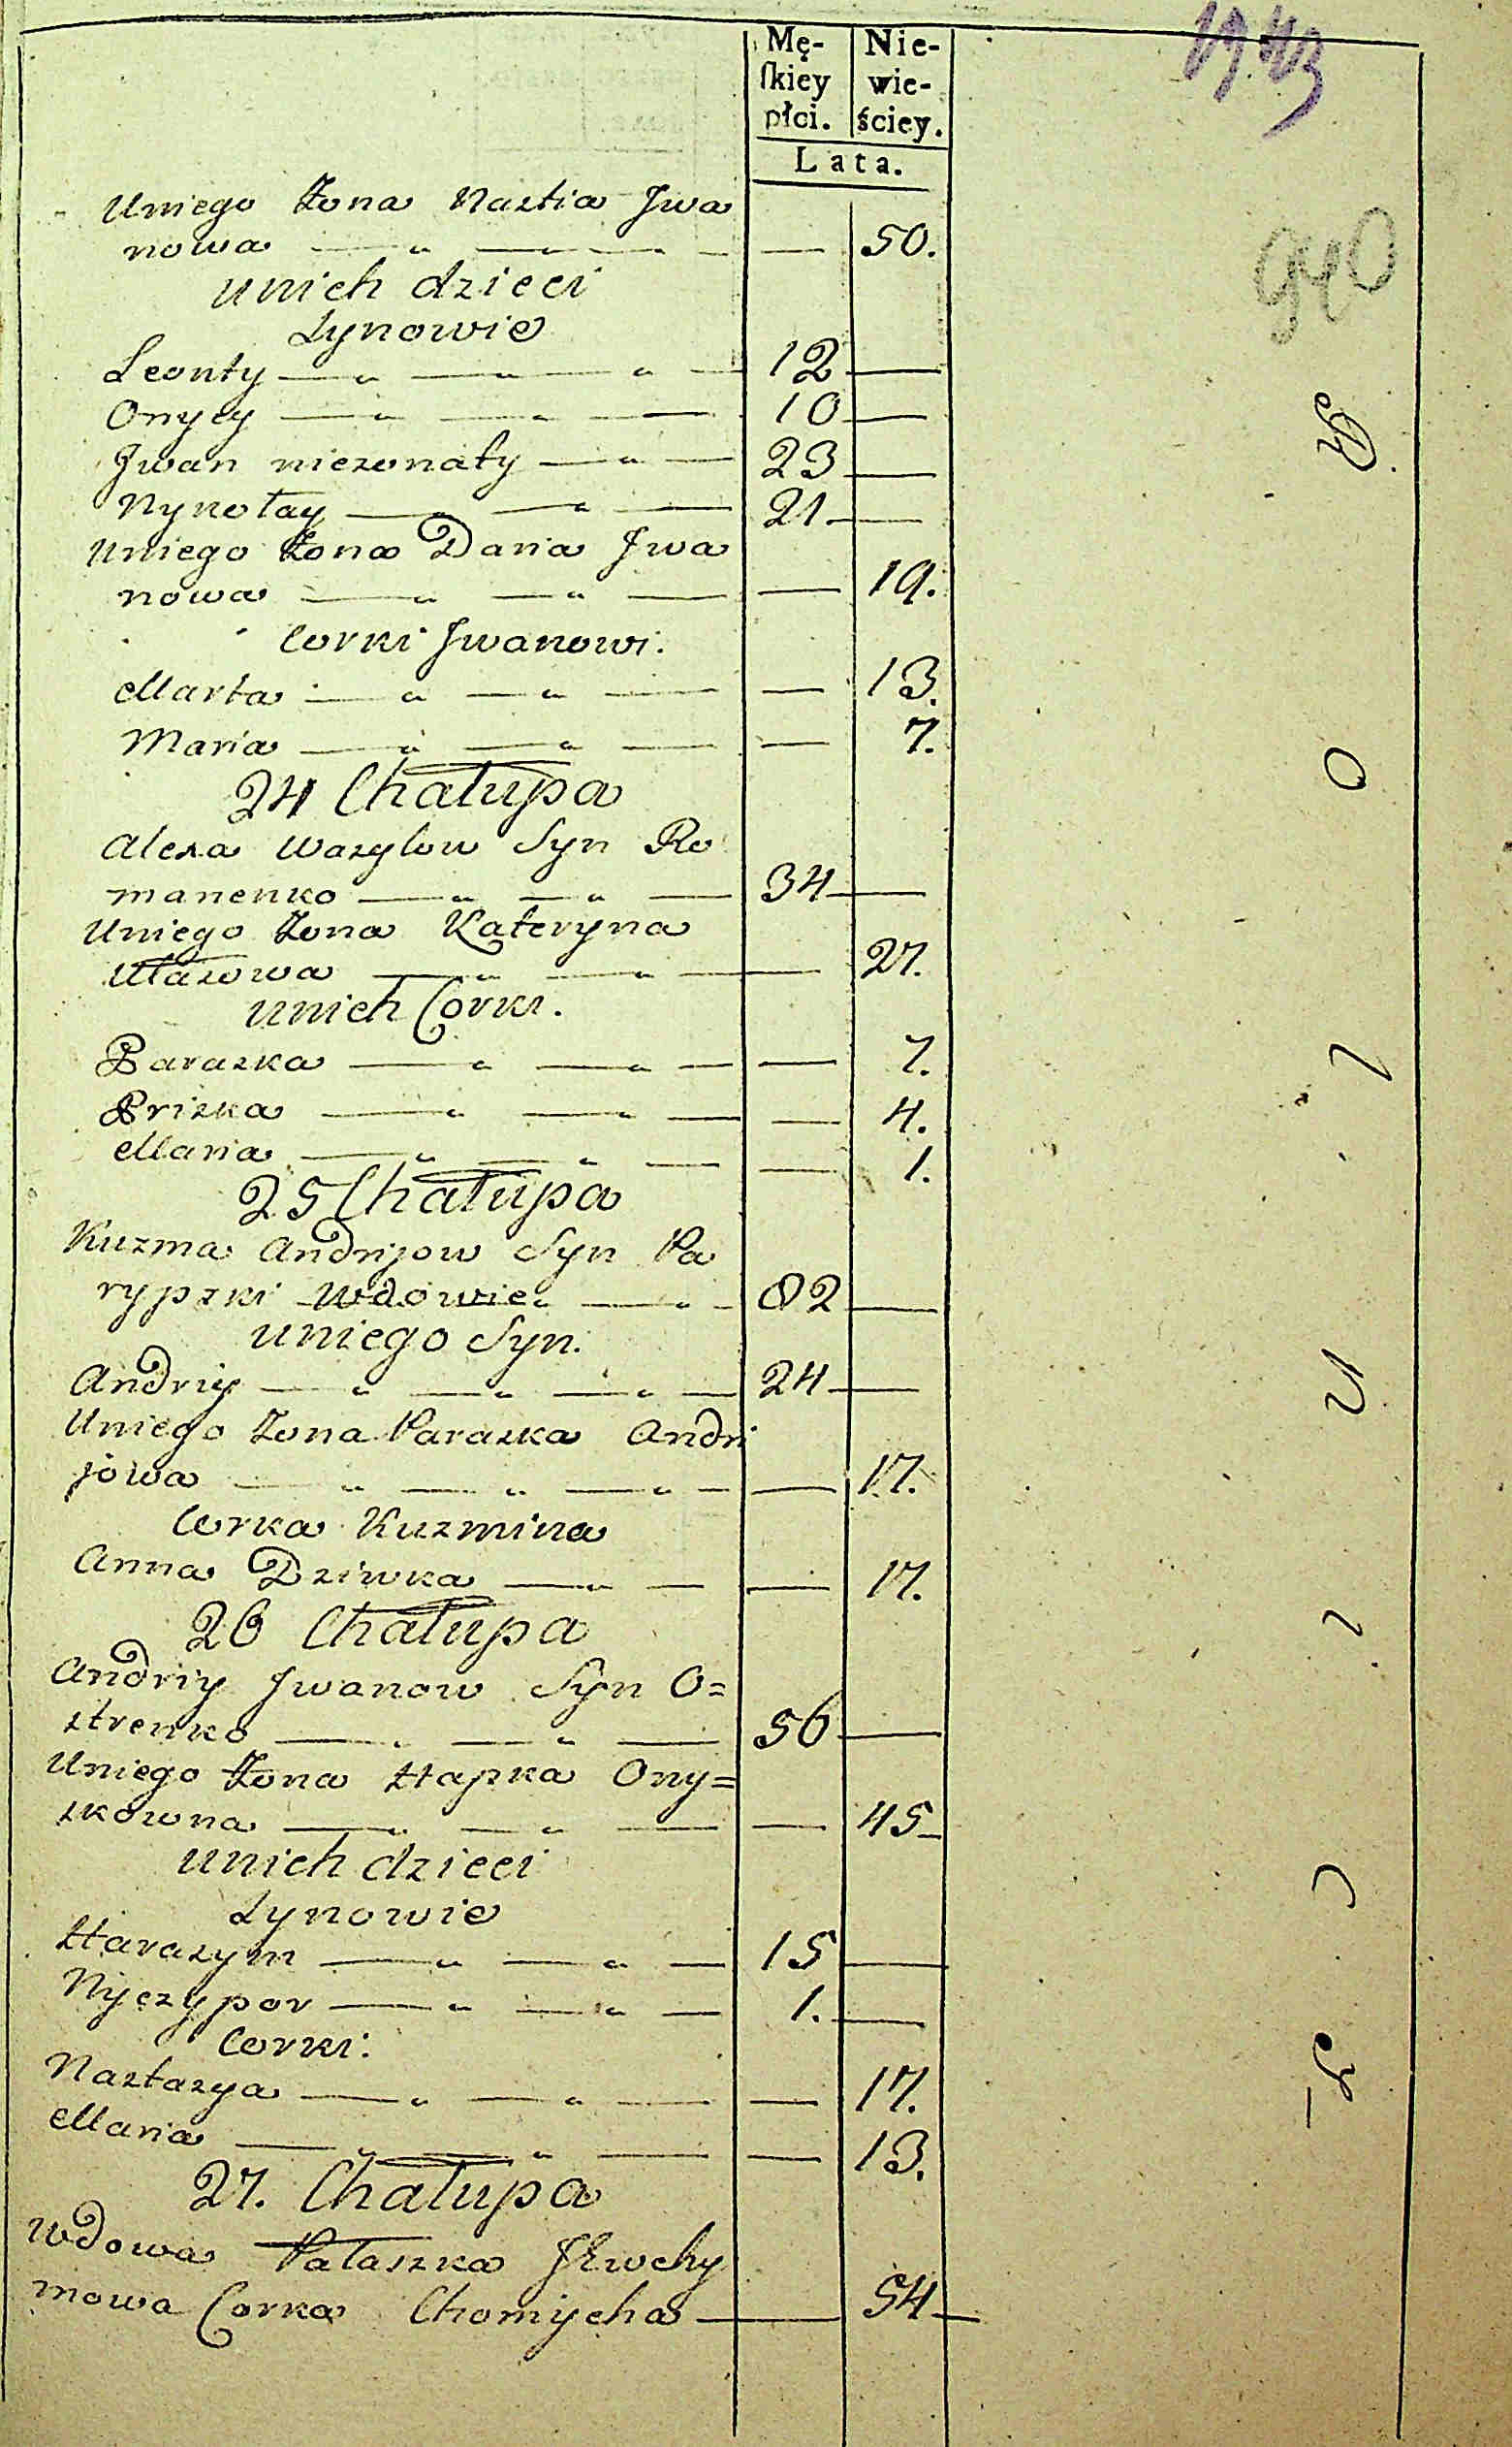 Mę-
ſkiey
płci.
Nie-
wie-
ściey.
Lata.
940
Uniego Żona Nastia Jwa
nowa — — — 50.
Unich dzieci
Synowie
Leonty — — — 12 —
Onyey — — — 10 —
Jwan nieżonaty — — 23 —
Nykołay — — — 21 —
Uniego Żona Daria Jwa
nowa — — — 19.
Corki Jwanowi.
Marta — — — 13.
Maria — — — 7.
24 Chałupa
Alexa Wasylow Syn Ro
manenko — — — 34 —
Uniego Żona Kateryna
Ułasowa — — — 27.
Unich Corki.
Paraska — — — 7.
Priska — — — 4.
Maria — — — 1.
25 Chałupa
Kuzma Andrijow Syn Pa
rypski Wdowiec — — 82 —
Uniego Syn.
Andriy — — — 24 —
Uniego Żona Paraska Andri
jowa — — — 17.
Corka Kuzmina
Anna Dziwka — — — 17.
26 Chałupa
Andriy Jwanow Syn O=
strenko — — — 56 —
Uniego Żona Hapka Ony=
skowna — — — 45 —
Unich dzieci
Synowie
Harasym — — — 15 —
Nyczypor — — — 1. —
Corki:
Nastasya — — — 17.
Maria — — — 13.
27. Chałupa
Wdowa Pałaszka Jewchy
mowa Corka Chomycha — — 54 —